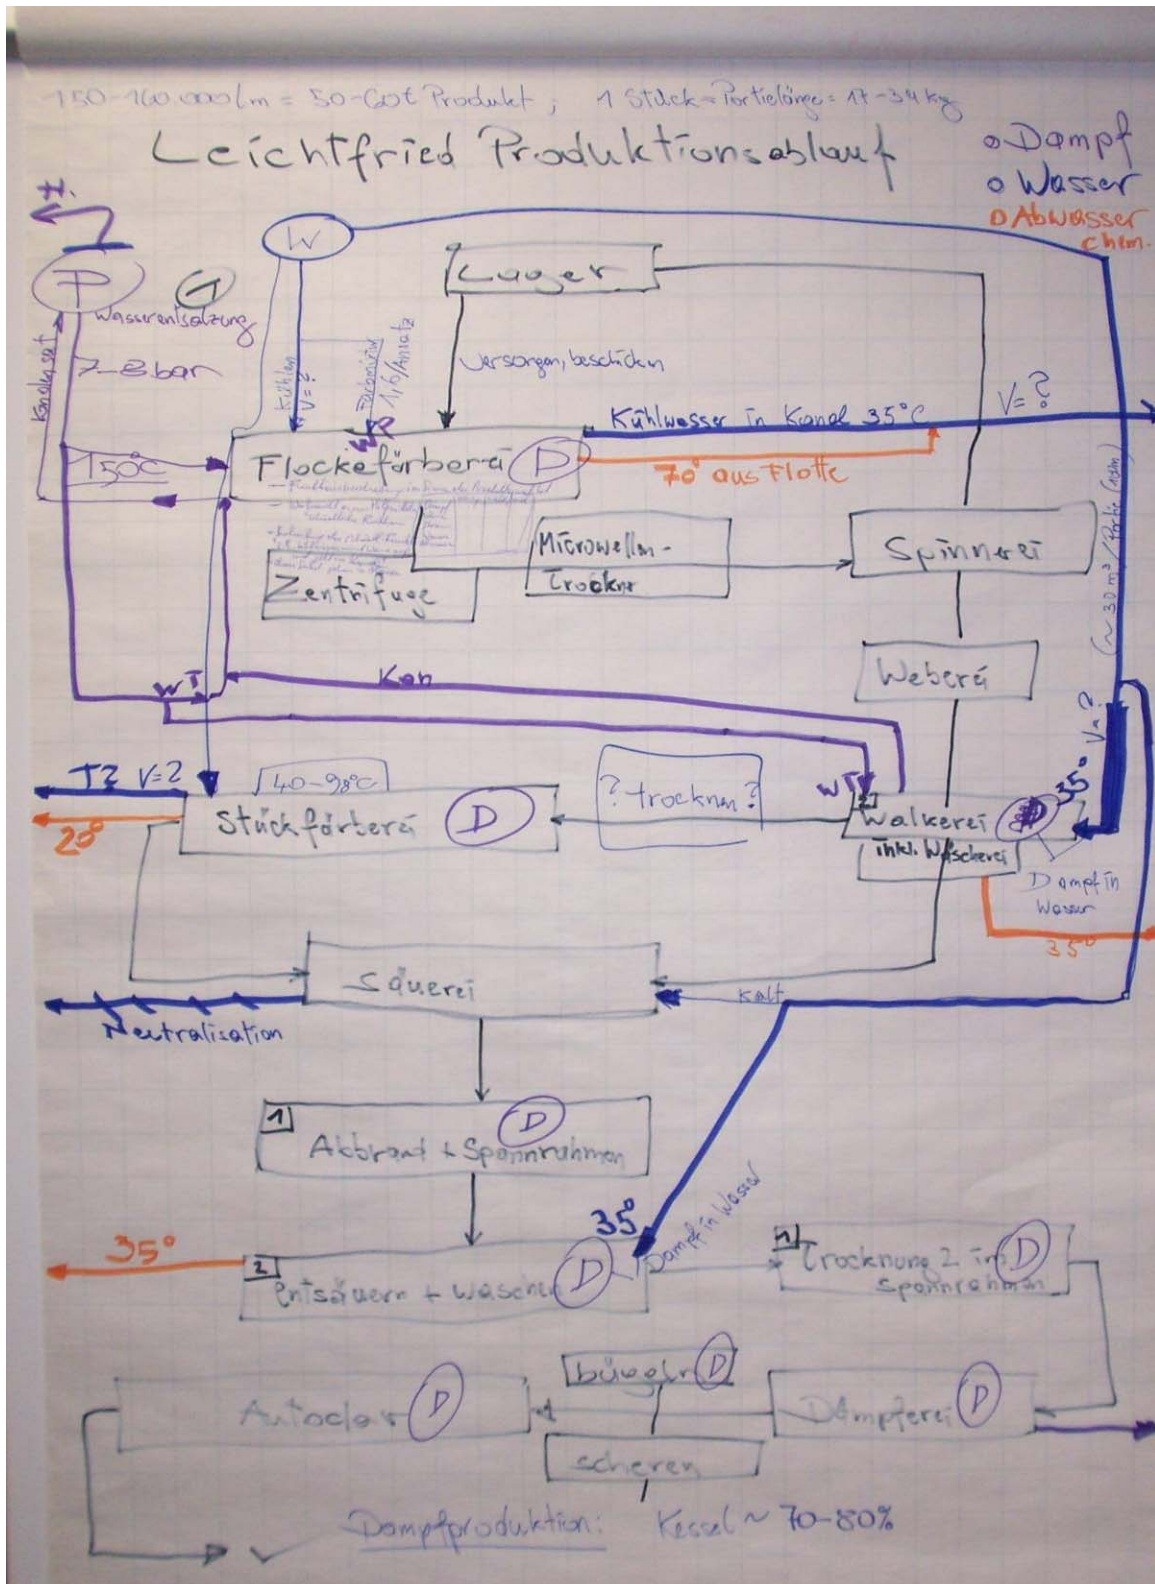 150-160.000 lm = 50-60t Produkt; 1 Stück = Partielänge = 17-34 kg
Leichtfried Produktionsablauf
Dampf
Wasser
Abwasser
chem.
W
Lager
P
1
Wasserentsalzung
7-8 bar
Kondensat
Kühlen
V=?
1,6/Ansatz
versorgen, beschicken
Kühlwasser in Kanal 35°C
V=?
WT
150°C
Flockefärberei
D
70° aus Flotte
Microwellen-
Trockner
Spinnerei
Zentrifuge
(~30 m³/Partie
Weberei
WT
Kon
V=?
35°
T? V=?
40-98°C
? trocknen?
WT
20°
Stückfärberei
D
2
Walkerei
inkl. Wäscherei
Dampf in
Wasser
35°
Säuerei
kalt
Neutralisation
1
D
Abbrand + Spannrahmen
35°
Dampf in Wasser
35°
2
entsäuern + waschen
D
1
Trocknung 2 im
Spannrahmen
D
bügeln
D
Autoclav
D
Dämpferei
D
scheren
Dampfproduktion: Kessel ~ 70-80%